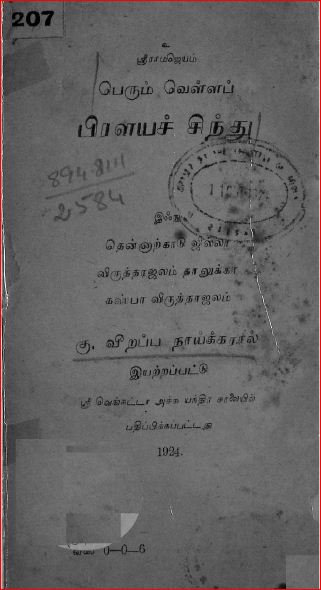 207
உ
ஸ்ரீராமஜெயம்
பெரும் வெள்ளப்
பிரளயச் சிந்து
894.8111
2584
இஃது
தென்னாற்காடு ஜில்லா
விருத்தாஜலம் தாலுக்கா
கஸ்பா விருத்தாஜலம்
கு. வீறப்ப நாய்க்கரால்
இயற்றப்பட்டு
ஸ்ரீ வெங்கட்டா அச்சு யந்திர சாலையில்
பதிப்பிக்கப்பட்டது
1924.
0-0-6